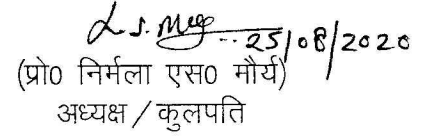 25/08/2020
(प्रो0 निर्मला एस0 मौर्य)
अध्यक्ष / कुलपति